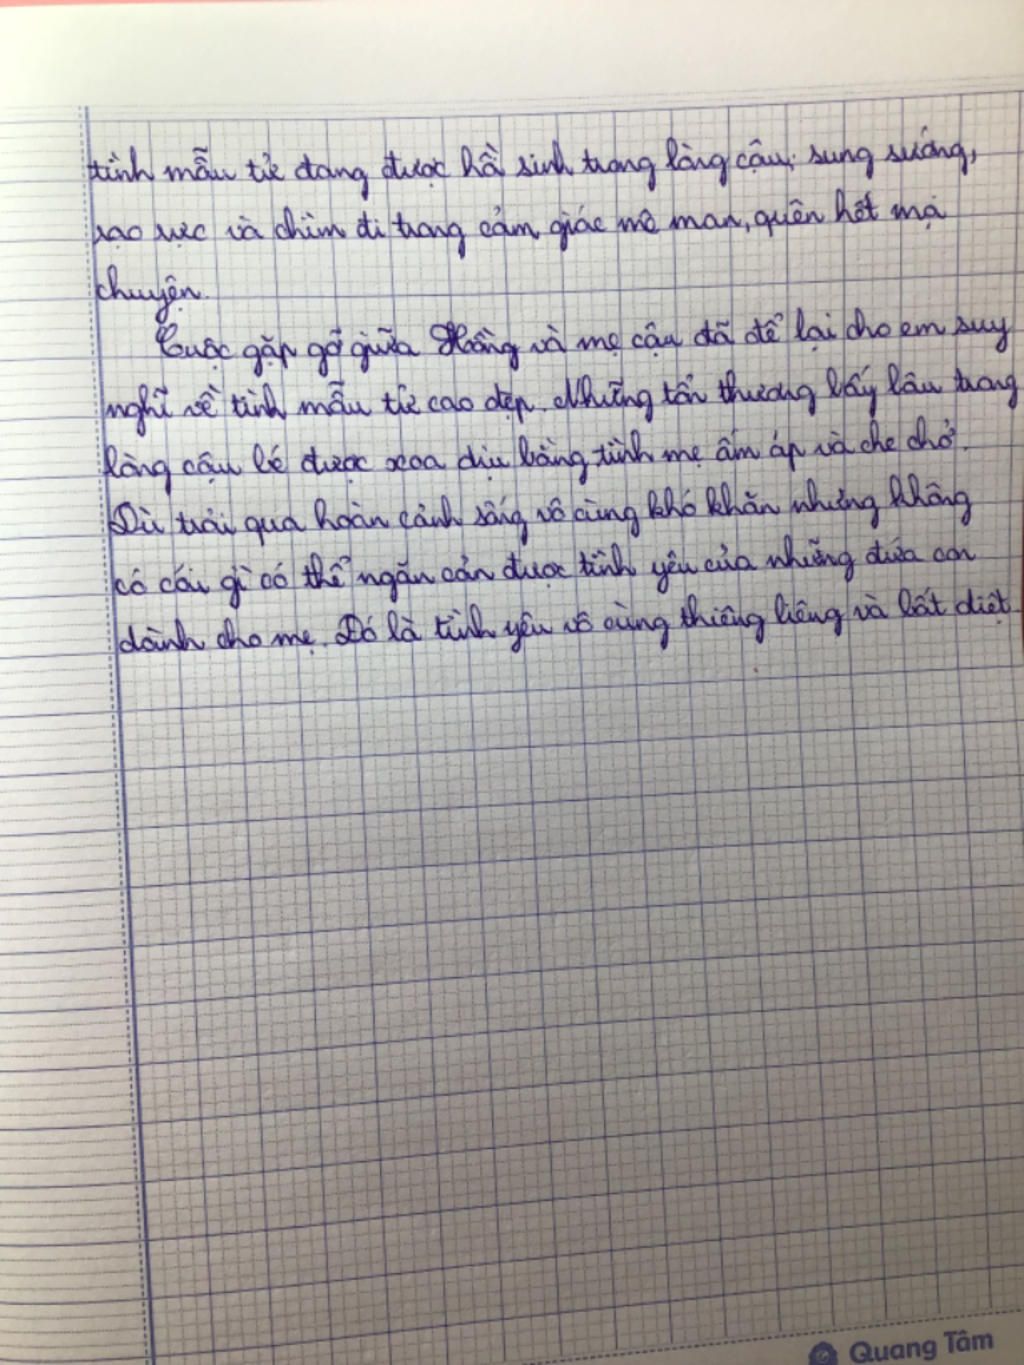 tình mẫu tử đang được hồi sinh trong lòng cậu; sung sướng,
rạo rực và chìm đi trong cảm giác mê man, quên hết mọi
chuyện.
Cuộc gặp gỡ giữa Hồng và mẹ cậu đã để lại cho em suy
nghĩ về tình mẫu tử cao đẹp. Những tổn thương bấy lâu trong
lòng cậu bé được xoa dịu bằng tình mẹ ấm áp và che chở.
Dù trải qua hoàn cảnh sống vô cùng khó khăn nhưng không
có cái gì có thể ngăn cản được tình yêu của những đứa con
dành cho mẹ. Đó là tình yêu vô cùng thiêng liêng và bất diệt
Quang Tâm